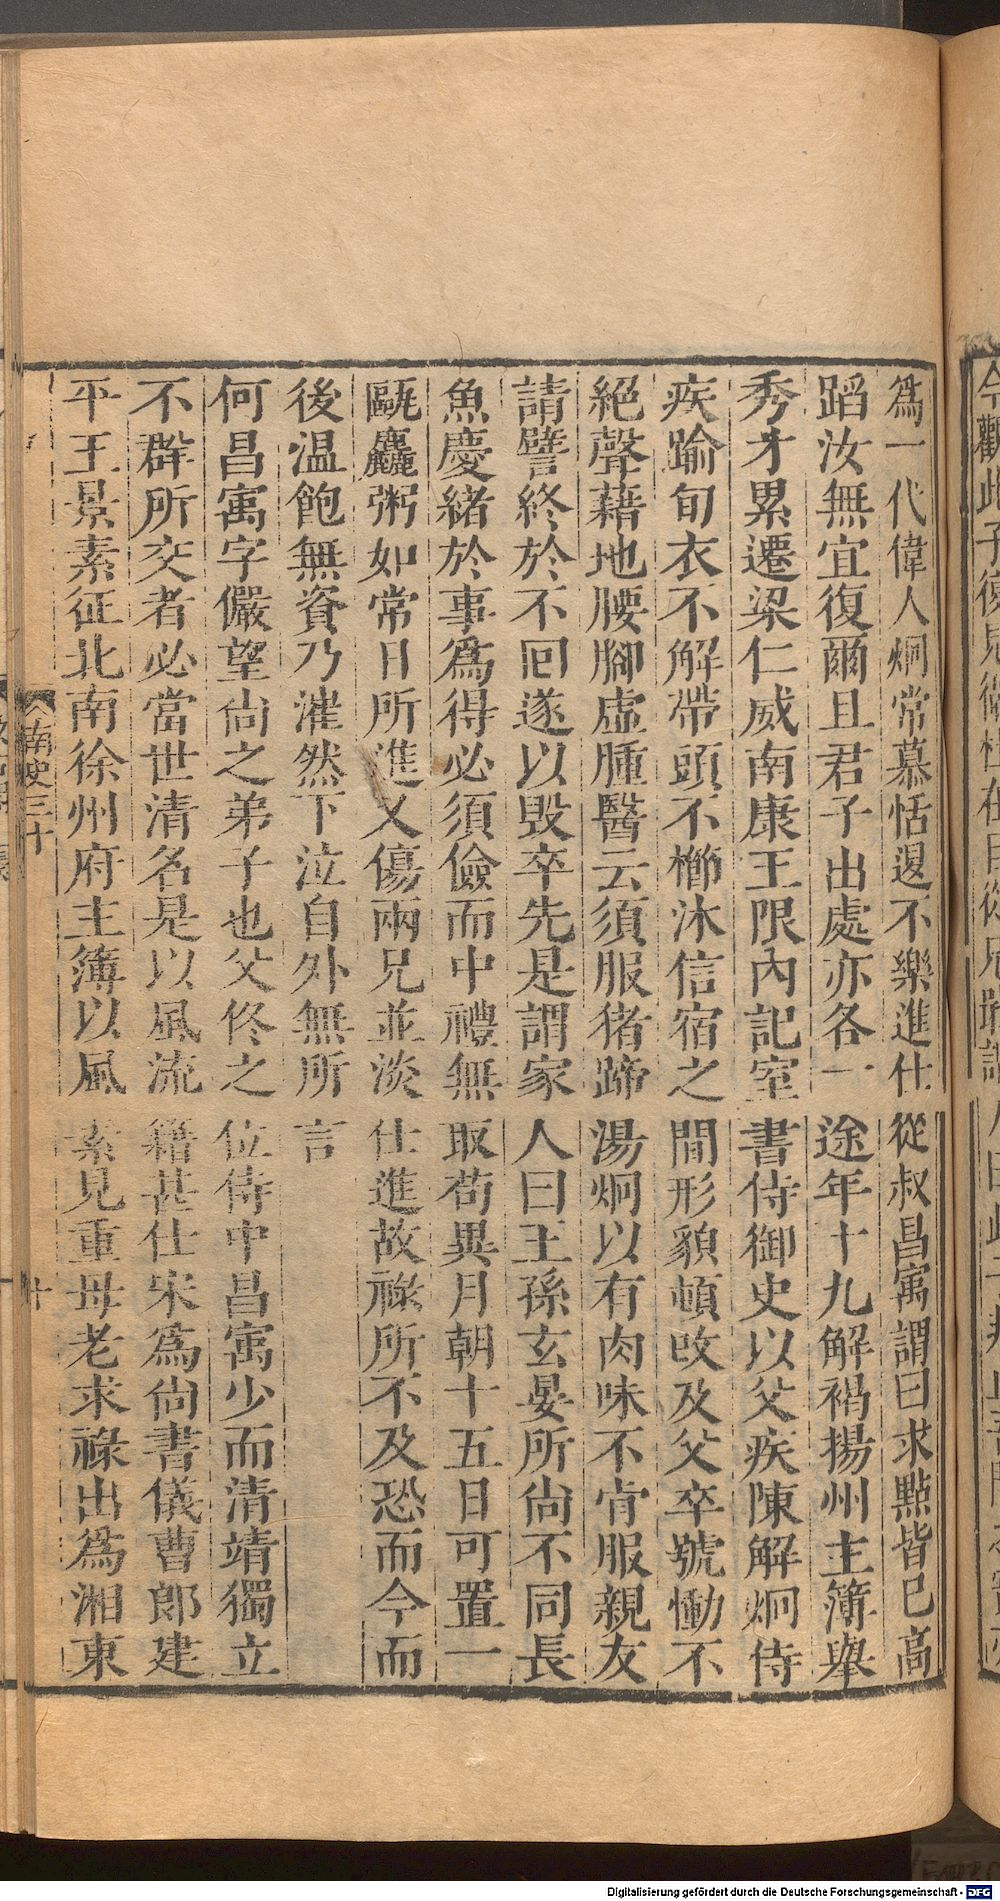 爲一代偉人炯常慕恬退不樂進仕從叔昌寓謂曰求點皆已高
蹈汝無宜復爾且君子出處亦各一途年十九解褐揚州主簿舉
秀才累遷梁仁威南康王限內記室書侍御史以父疾陳解炯侍
疾踰旬衣不解帶頭不櫛沐信宿之間形貌頓改及父卒號慟不
絕聲藉地腰腳虛腫醫云須服猪蹄湯炯以有肉味不肯服親友
請譬終於不回遂以毀卒先是謂家人曰王孫玄晏所尚不同長
魚慶緒於事爲得必須儉而中禮無取苟異月朝十五日可置一
甌麤粥如常日所進又傷兩兄並淡仕進故祿所不及恐而今而
後溫飽無資乃漼然下泣自外無所言
何昌寓字儼望尚之弟子也父佟之位侍中昌寓少而清靖獨立
不群所交者必當世清名是以風流籍甚仕宋爲尚書儀曹郎建
平王景素征北南徐州府主簿以風素見重母老求祿出爲湘東
南史三十
Digitalisierung gefördert durch die Deutsche Forschungsgemeinschaft - DFG